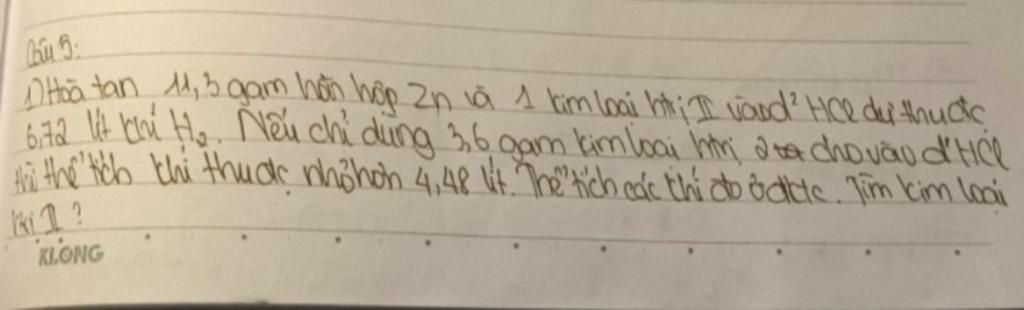 Câu 5:
1) Hoà tan 11,3 gam hỗn hợp Zn và 1 kim loại htrị II vào d² HCl dư thu đc
6,72 lít khí H₂. Nếu chỉ dùng 3,6 gam kim loại htrị 2 cho vào d² HCl
thì thể tích khí thu đc nhỏ hơn 4,48 lít. Thể tích các khí đo ở đktc. Tìm kim loại
htrị II ?
KLONG